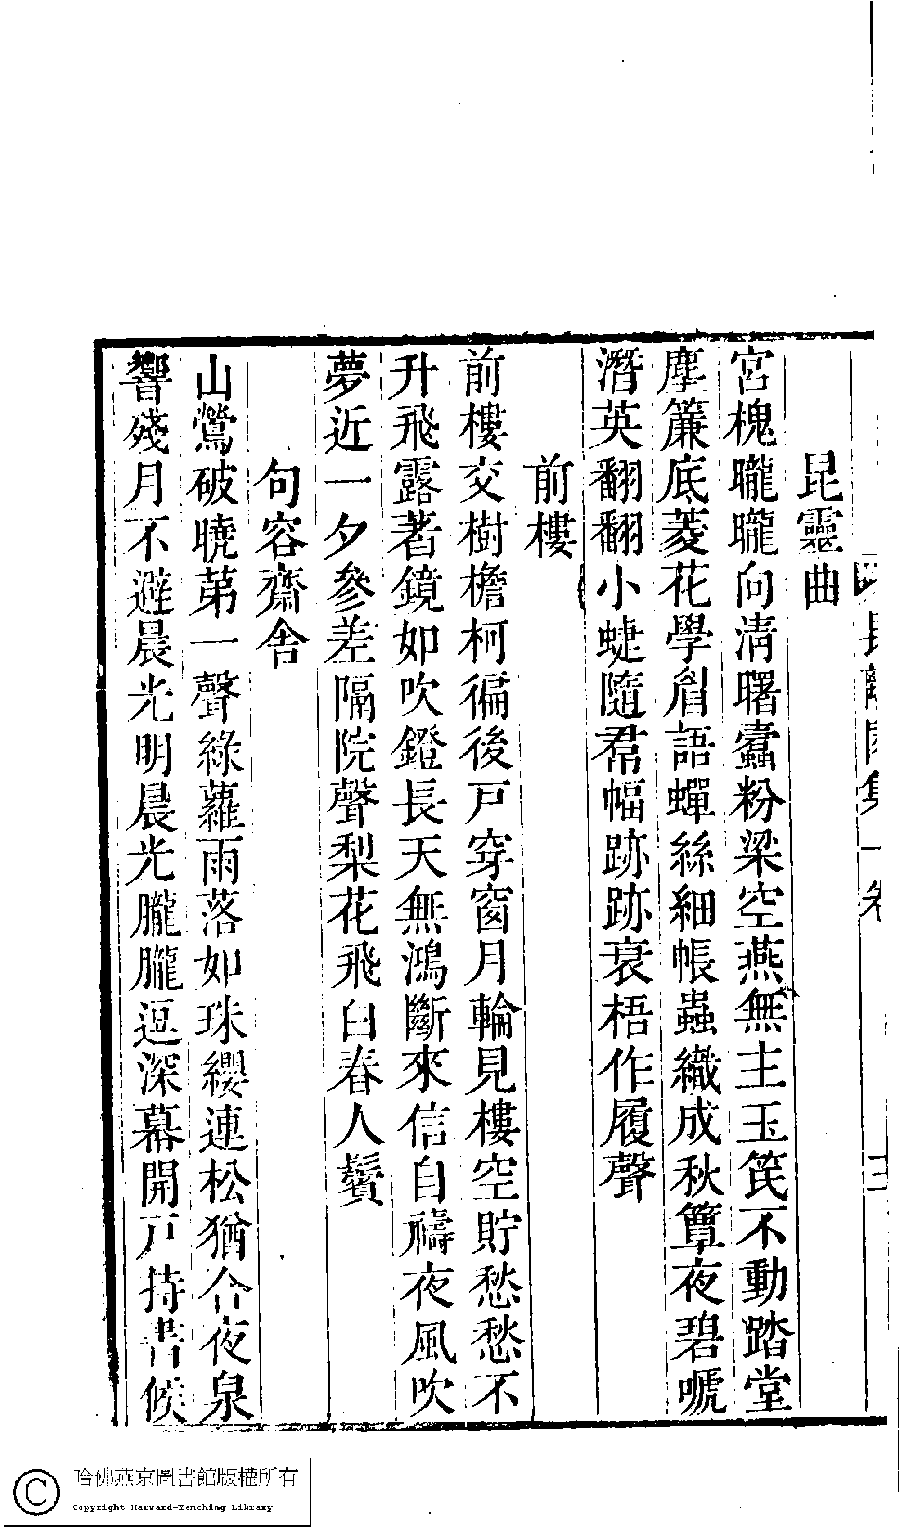 昆靈曲
宮槐曨曨向清曙蠹粉梁空燕無主玉笢不動踏堂
塵簾底菱花學眉語蟬絲細帳蟲織成秋簟夜碧嗁
潛英翻翻小蜨隨君幅跡跡衰梧作履聲
前樓
前樓交樹檐柯徧後戸穿窗月輪見樓空貯愁愁不
升飛露著鏡如吹鐙長天無鴻斷來信自禱夜風吹
夢近一夕參差隔院聲梨花飛白春人鬢
句容齋舍
山鶯破曉第一聲綠蘿雨落如珠纓連松猶合夜泉
響殘月不避晨光明晨光朧朧逗深幕開戸持書候
哈佛燕京圖書館版權所有
Copyright Harvard-Yenching Library